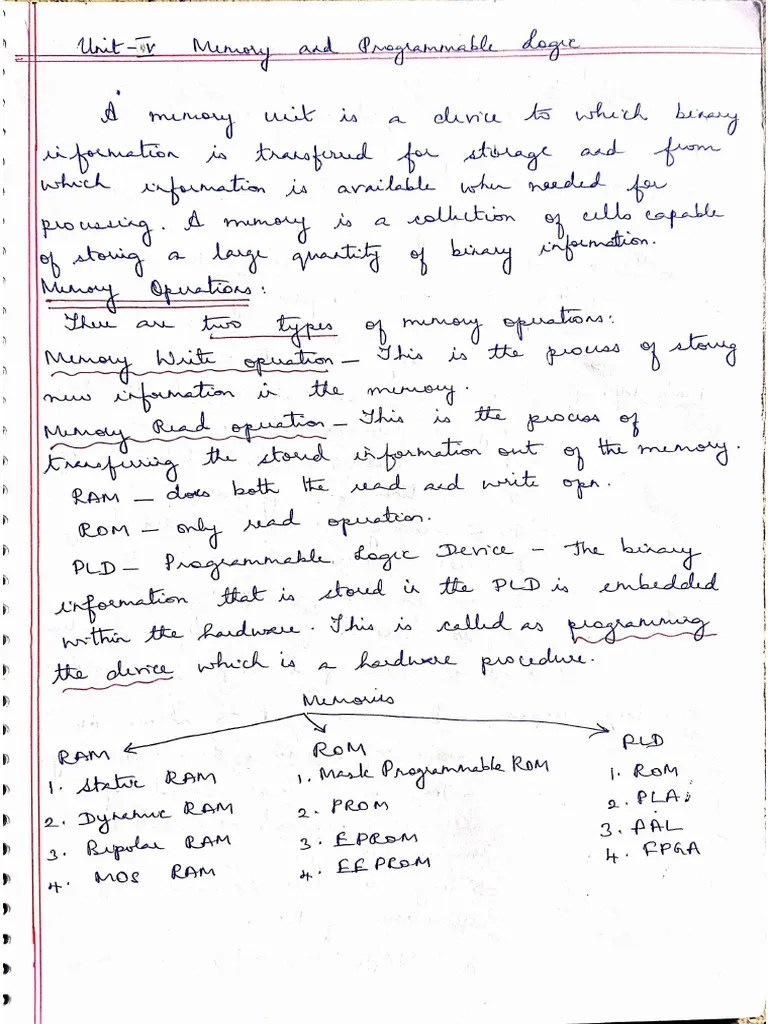 Unit-IV Memory and Programmable Logic
A memory unit is a device to which binary
information is transferred for storage and from
which information is available when needed for
processing. A memory is a collection of cells capable
of storing a large quantity of binary information.
Memory Operations:
There are two types of memory operations:
Memory Write operation – This is the process of storing
new information in the memory.
Memory Read operation – This is the process of
transferring the stored information out of the memory.
RAM – does both the read and write opn.
ROM – only read operation.
PLD – Programmable Logic Device – The binary
information that is stored in the PLD is embedded
within the hardware. This is called as programming
the device which is a hardware procedure.
Memories
RAM
1. Static RAM
2. Dynamic RAM
3. Bipolar RAM
4. MOS RAM
ROM
1. Mask Programmable ROM
2. PROM
3. EPROM
4. EEPROM
PLD
1. ROM
2. PLA
3. PAL
4. FPGA